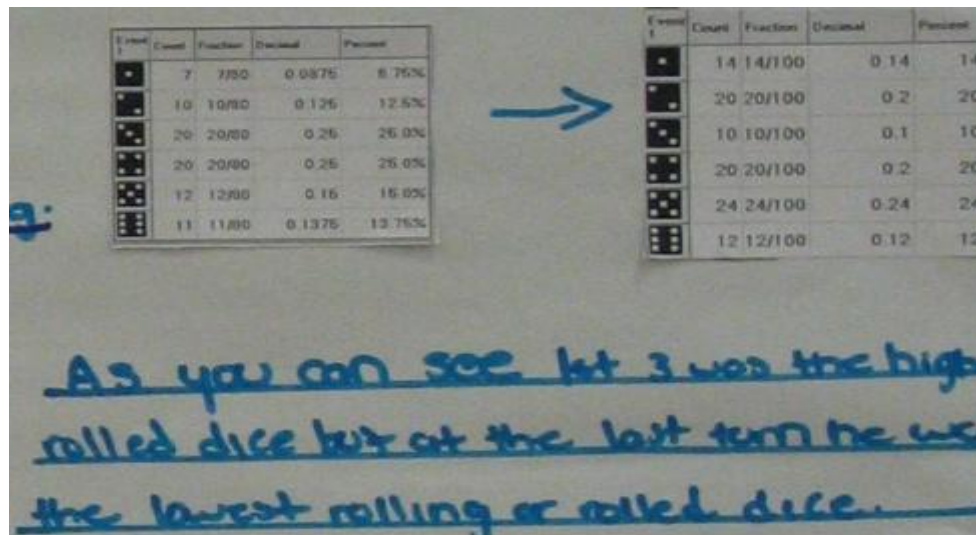 Event 1 Count Fraction Decimal Percent
7 7/80 0.0875 8.75%
10 10/80 0.125 12.5%
20 20/80 0.25 25.0%
20 20/80 0.25 25.0%
12 12/80 0.15 15.0%
11 11/80 0.1375 13.75%
Event 1 Count Fraction Decimal Percent
14 14/100 0.14 14
20 20/100 0.2 20
10 10/100 0.1 10
20 20/100 0.2 20
24 24/100 0.24 24
12 12/100 0.12 12
As you can see 3 was the high
rolled dice but at the last turn he
the lowest rolling or rolled dice.